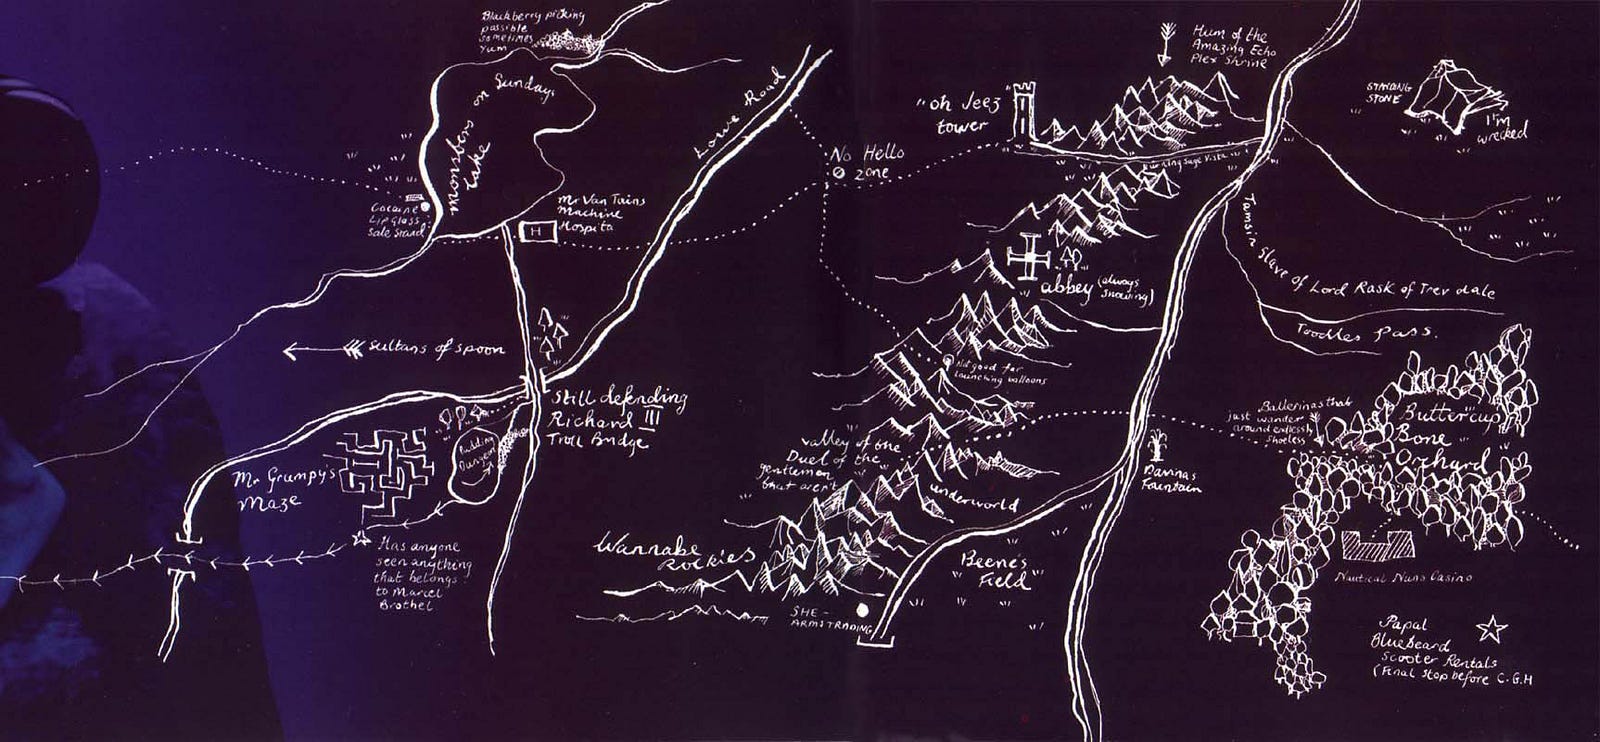 Blackberry picking
possible
sometimes
Yum
monsters on Sundays
Lake
Cocaine
Lip Glass
Sale Stand
Mr Van Tains
Machine
Hospita
H
Lowe Road
No Hello
zone
Sultans of Spoon
Still defending
Richard III
Troll Bridge
Pudding
Dungeon
Mr Grumpy's
Maze
Has anyone
seen anything
that belongs
to Marcel
Brothel
"oh Jeez"
tower
Hum of the
Amazing Echo
Plex Shrine
Burning Sage Vista
STANDING
STONE
I'm
wrecked
abbey (always
snowing)
Tamsin Slave of Lord Rask of Trevdale
Toodles Pass.
No good for
launching balloons
valley of one
Duel of the
gentlemen
that aren't
underworld
Wannabe
Rockies
SHE-
ARMSTRADING
"Beene's
Field"
Dannas
Fountain
Ballerinas that
just wander
around endlessly
shoeless
Buttercup
Bone
Orchard
Nautical Nuns Casino
Papal
Bluebeard
Scooter Rentals
(Final stop before C.G.H